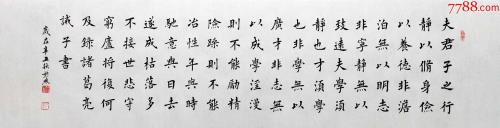 夫君子之行
靜以脩身儉
以養德非澹
泊無以明志
非寧靜無以
致遠夫學須
靜也才須學
也非學無以
廣才非志無
以成學淫漫
則不能勵精
險躁則不能
冶性年與時
馳意與日去
遂成枯落多
不接世悲守
窮廬將復何
及錄諸葛亮
誡子書
歲在辛丑秋
7788.com